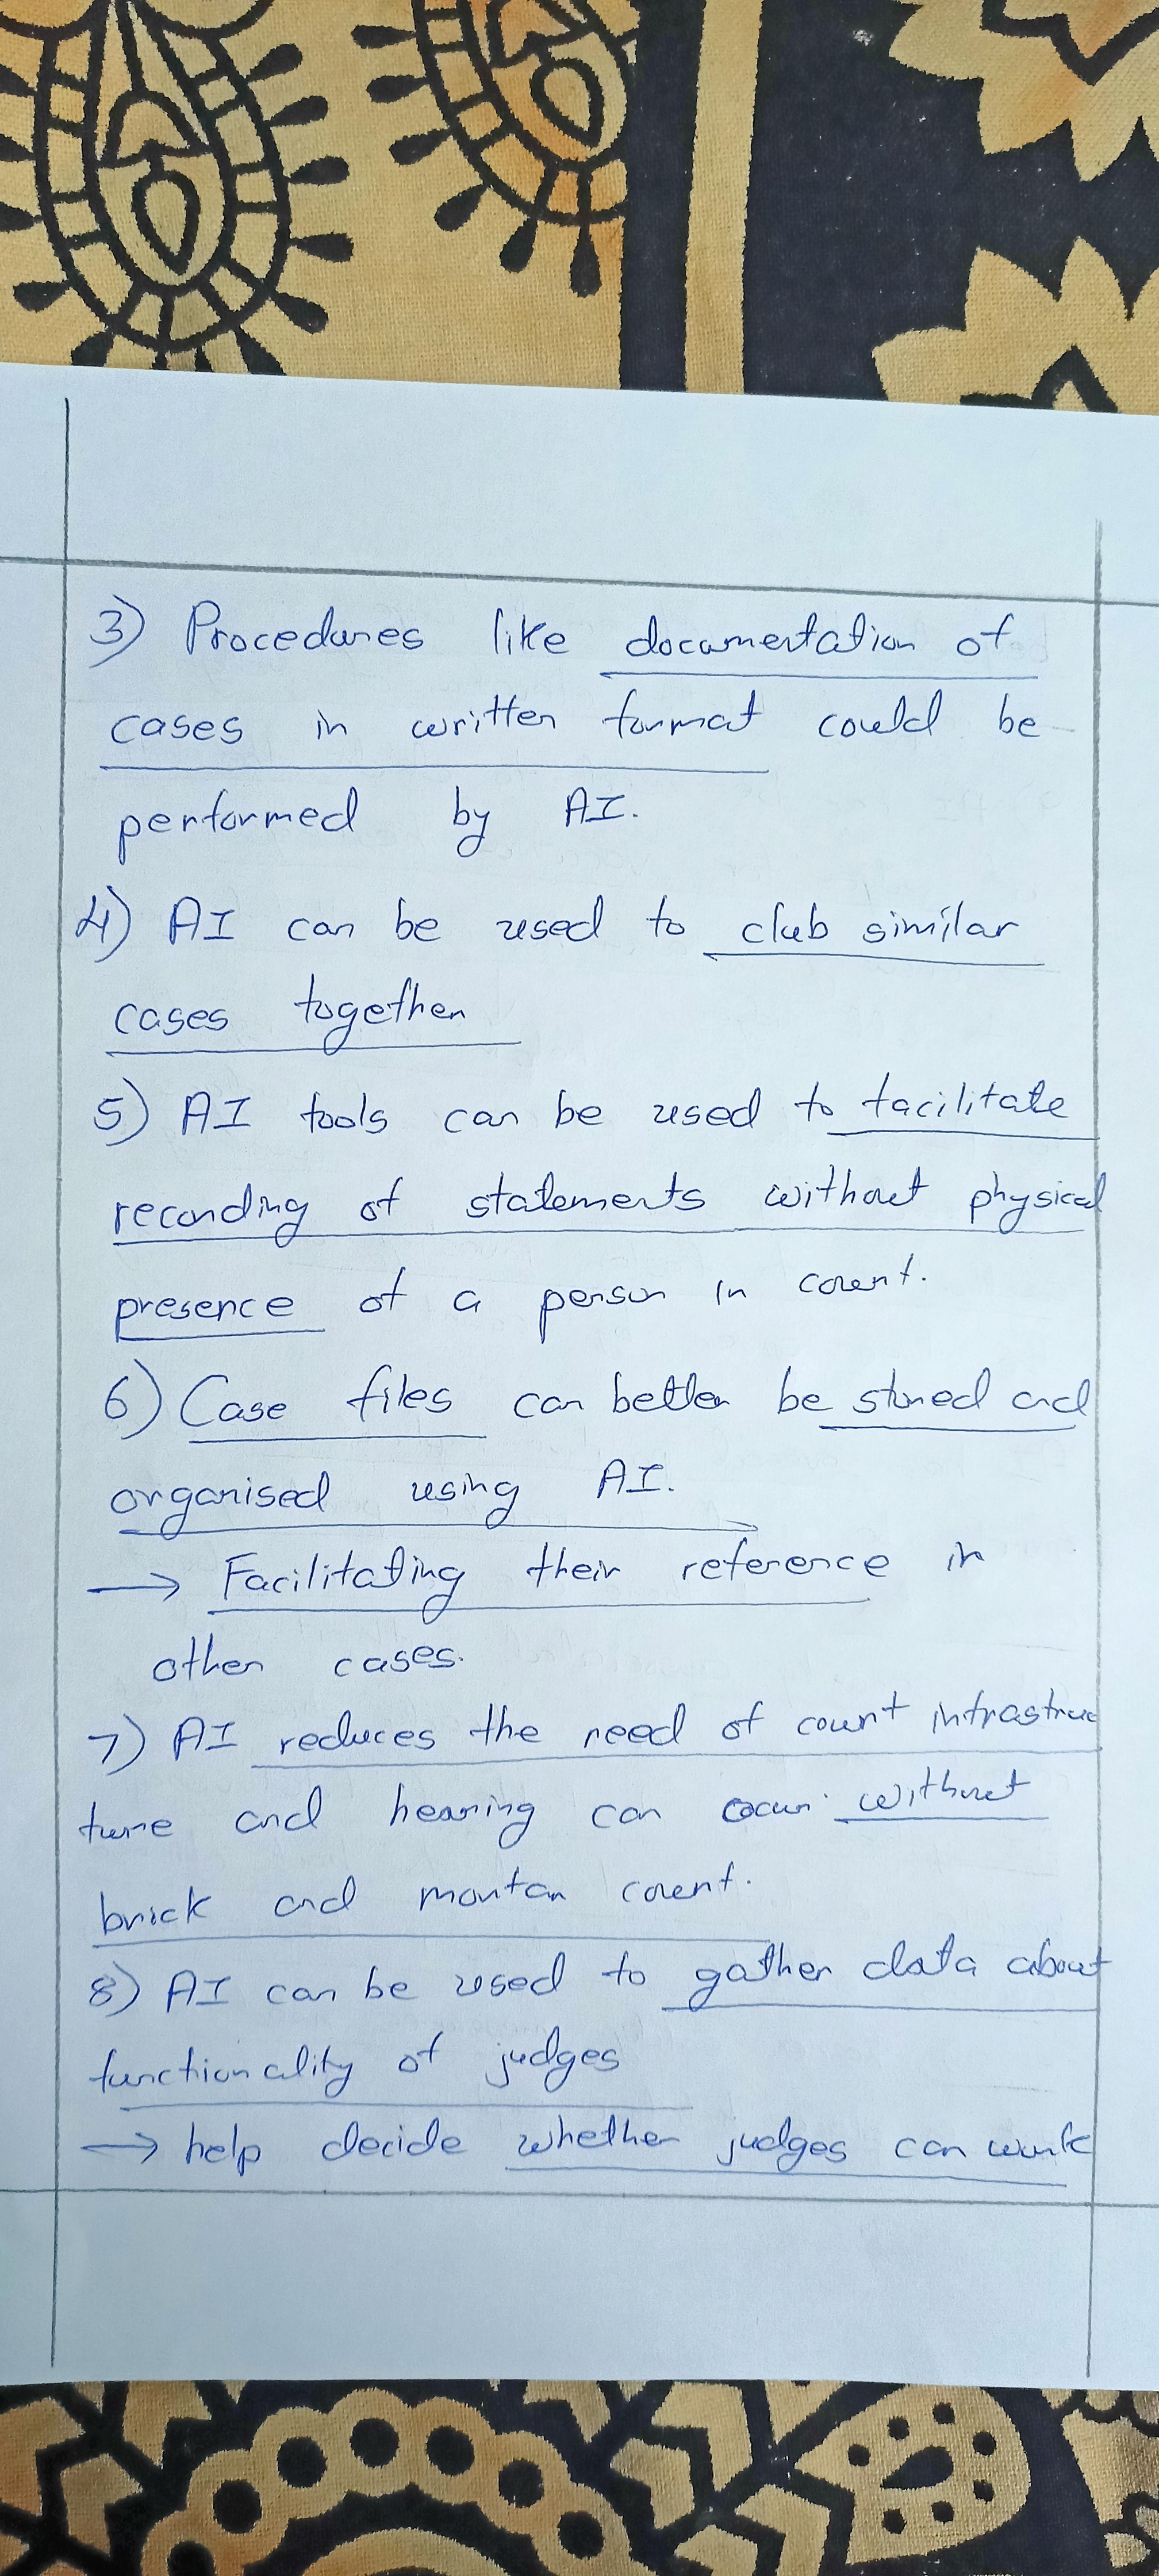 3) Procedures like documentation of
cases in written format could be
performed by AI.
4) AI can be used to club similar
cases together
5) AI tools can be used to facilitate
recording of statements without physical
presence of a person in court.
6) Case files can better be stored and
organised using AI.
→ Facilitating their reference in
other cases.
7) AI reduces the need of court infrastruc
ture and hearing can occur without
brick and mortar court.
8) AI can be used to gather data about
functionality of judges
→ help decide whether judges can work